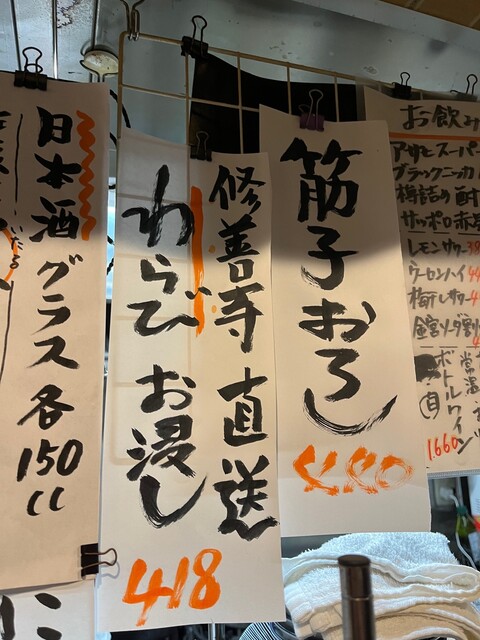 お飲み
アサヒスーパー
ブラックニッカ
樽詰め 酎
サッポロ赤星
レモンサワー
ウーロンハイ
梅干しサワー
金宮ソダ割
ボトルワイン
常温
1660
筋子おろし
修善寺 直送
わらび お浸し
418
日本酒 グラス 各150cc
に